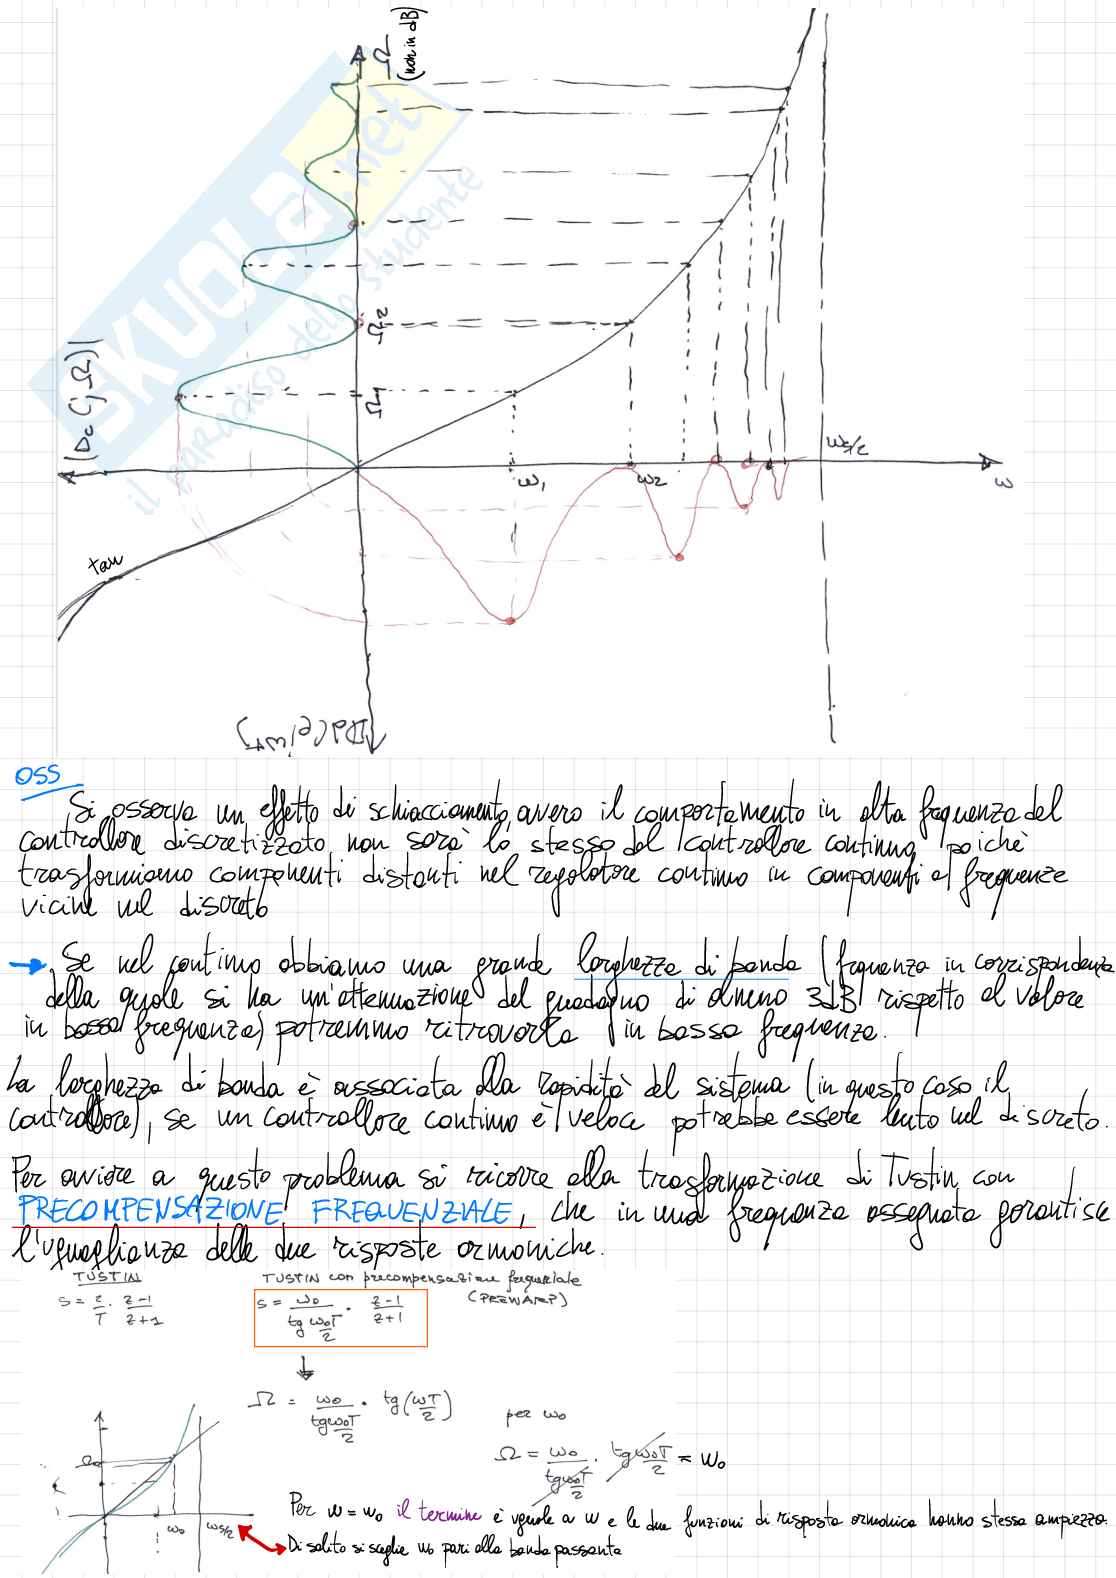 Ω
(non in dB)
SKUOLA.net
il paradiso dello studente
|Dc(jΩ)|
Ω2
Ω1
ωs/2
ω1
ω2
ω
tan
|Dd(e^jωT)|
OSS
Si osserva un effetto di schiacciamento, ovvero il comportamento in alta frequenza del
controllore discretizzato non sarà lo stesso del controllore continuo, poiché
trasformiamo componenti distanti nel regolatore continuo in componenti a frequenze
vicine nel discreto
→ Se nel continuo abbiamo una grande larghezza di banda (frequenza in corrispondenza
della quale si ha un'attenuazione del guadagno di almeno 3dB rispetto al valore
in bassa frequenza) potremmo ritrovarla in bassa frequenza.
La larghezza di banda è associata alla rapidità del sistema (in questo caso il
controllore), se un controllore continuo è veloce potrebbe essere lento nel discreto.
Per ovviare a questo problema si ricorre alla trasformazione di Tustin con
PRECOMPENSAZIONE FREQUENZIALE, che in una frequenza assegnata garantisce
l'uguaglianza delle due risposte armoniche.
TUSTIN
s = 2/T · z-1/z+1
TUSTIN con precompensazione frequenziale
(PREWARP)
s = ω0/tg ω0T/2 · z-1/z+1
Ω = ω0/tg ω0T/2 · tg(ωT/2)
per ω0
Ω = ω0/tg ω0T/2 · tg ω0T/2 = ω0
Ω0
ω0
ωs/2
Per ω = ω0 il termine è uguale a ω e le due funzioni di risposta armonica hanno stessa ampiezza.
Di solito si sceglie ω0 pari alla banda passante